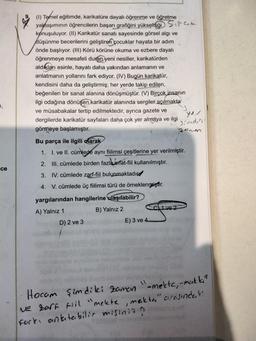 (I) Temel eğitimde, karikatüre dayalı öğrenme ve öğretme
yaklaşımının öğrencilerin başarı grafiğini yükselttiği
konuşuluyor. (II) Karikatür sanatı sayesinde görsel algı ve
düşünme becerilerini geliştiren çocuklar hayata bir adım
önde başlıyor. (III) Körü körüne okuma ve ezbere dayalı
öğrenmeye mesafeli duran yeni nesiller, karikatürden
aldıkları esinle, hayatı daha yakından anlamanın ve
anlatmanın yollarını fark ediyor. (IV) Bugün karikatür,
kendisini daha da geliştirmiş; her yerde takip edilen,
beğenilen bir sanat alanına dönüşmüştür. (V) Birçok insanın
ilgi odağına dönüşen karikatür alanında sergiler açılmakta
ve müsabakalar tertip edilmektedir, ayrıca gazete ve
dergilerde karikatür sayfaları daha çok yer almaya ve ilgi
görmeye başlamıştır.
Bu parça ile ilgili olarak
1. I. ve II. cümlede aynı fiilimsi çeşitlerine yer verilmiştir.
2. III. cümlede birden fazla sıfat-fiil kullanılmıştır.
3. IV. cümlede zarf-fiil bulunmaktadır.
4. V. cümlede üç fiilimsi türü de örneklenmiştir.
yargılarından hangilerine ulaşılabilir?
A) Yalnız 1
B) Yalnız 2
C) 1 ve 2
D) 2 ve 3
E) 3 ve 4
Hocam Şimdiki zaman "-mekte, -makta"
ve zarf fiil "mekte, makta" arasındaki
farkı anlatabilir misiniz?